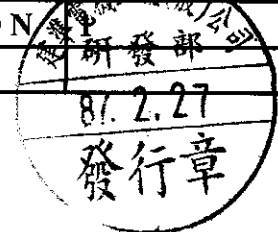 N 1
公司
研發部
87.2.27
發行章